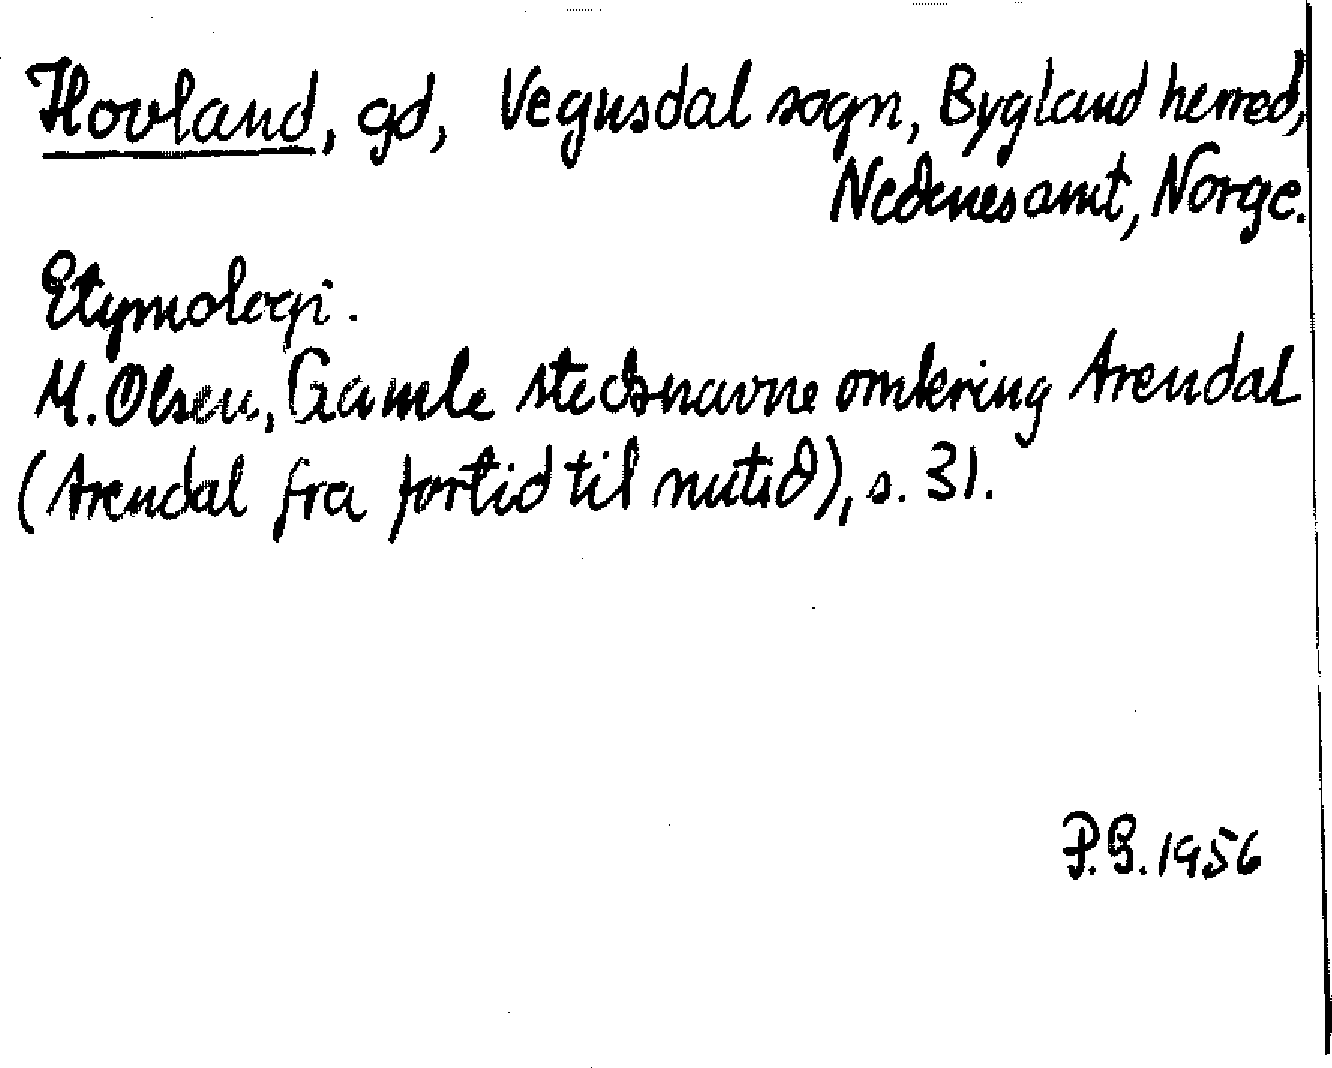 Hovland, gd, Vegusdal sogn, Bygland herred,
Nedenes amt, Norge.
Etymologi.
M. Olsen, Gamle stedsnavne omkring Arendal
(Arendal fra fortid til nutid), s. 31.
P.G. 1956